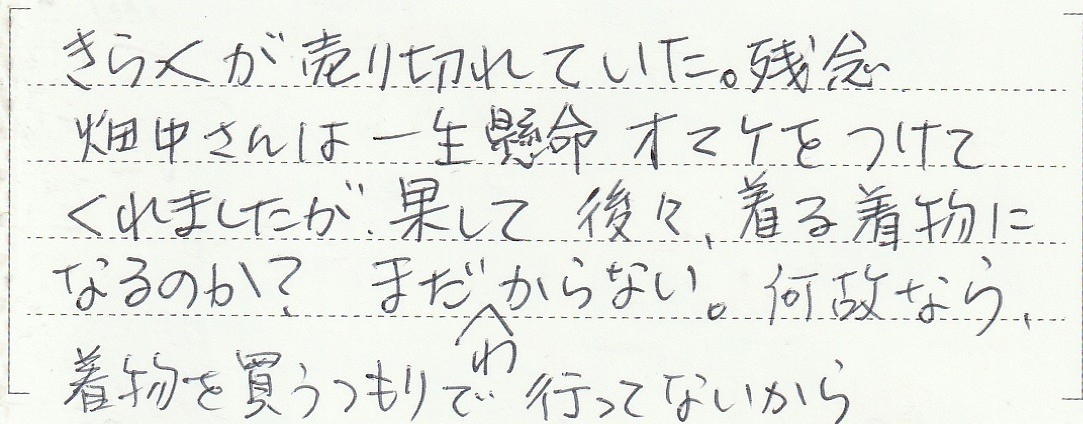 きらくが売り切れていた。残念
畑中さんは一生懸命オマケをつけて
くれましたが、果して後々、着る着物に
なるのか? まだわからない。何故なら、
着物を買うつもりで行ってないから